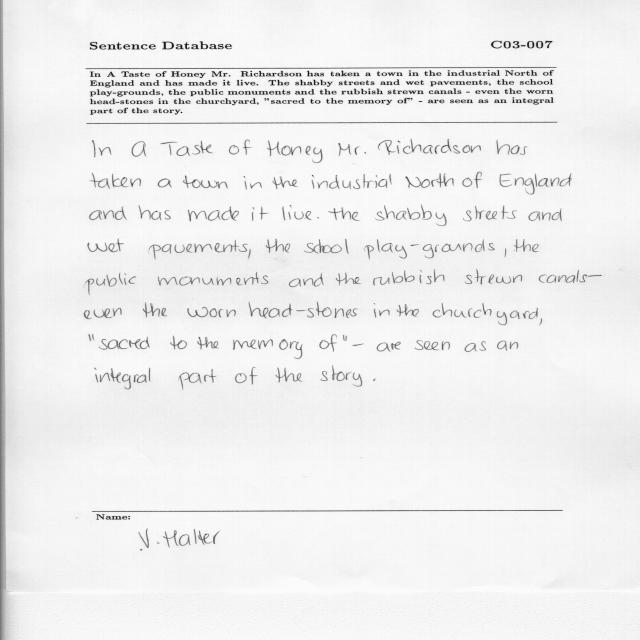 Sentence Database C03-007
In A Taste of Honey Mr. Richardson has taken a town in the industrial North of
England and has made it live. The shabby streets and wet pavements, the school
play-grounds, the public monuments and the rubbish strewn canals - even the worn
head-stones in the churchyard, "sacred to the memory of" - are seen as an integral
part of the story.
In A Taste of Honey Mr. Richardson has
taken a town in the industrial North of England
and has made it live. the shabby streets and
wet pavements, the school play-grounds, the
public monuments and the rubbish strewn canals-
even the worn head-stones in the churchyard,
"sacred to the memory of" - are seen as an
integral part of the story.
Name:
V. Halter